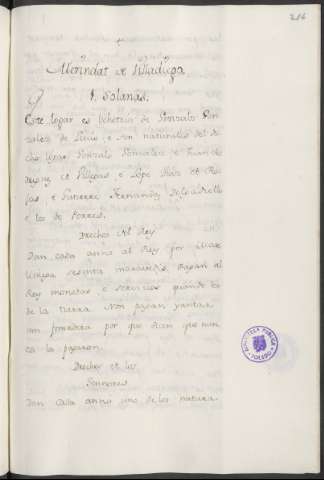 216
Merindat de Villadiego
1. Solanas.
Este logar es behetria de Gonzalo Gon
zalez de Lucio e son naturales del di
cho logar Gonzalo Gonzalez e Sancho
de Villegas e Lope Diaz de Ro
jas e Gutierre Fernandez Delgadiello
e los de Porres.
Drechos del Rey
Dan cada anno al Rey por
sesenta maravedis, pagan al
Rey monedas e servicios quando los
de la tierra non pagan yantar
nin fonsadera por que dicen que nun
ca la pagaron.
Drechos de los
Sennores
Dan cada anno uno de los natura
BIBLIOTECA PUBLICA
TOLEDO